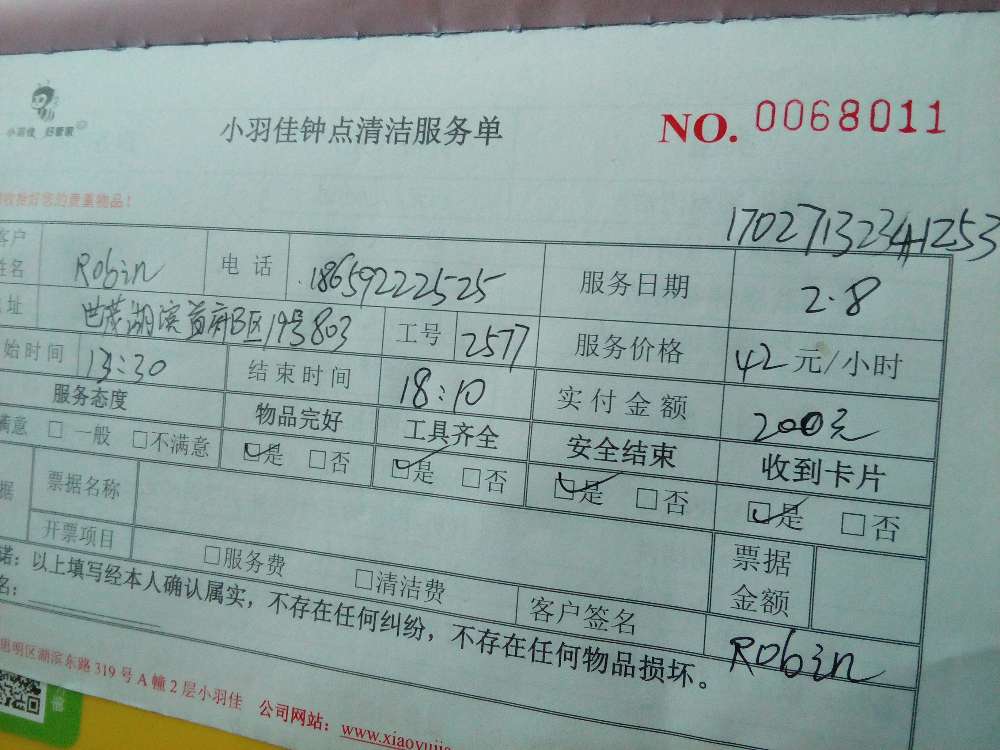 小羽佳 好管家
小羽佳钟点清洁服务单 NO. 0068011
收拾好您的贵重物品！
17027132341253
客户姓名 Robin 电话 18659222525 服务日期 2.8
址 世茂湖滨首府B区19号803 工号 2577 服务价格 42元/小时
始时间 13:30 结束时间 18:10 实付金额 200元
服务态度 物品完好 工具齐全 安全结束 收到卡片
满意 □一般 □不满意 ☑是 □否 ☑是 □否 ☑是 □否 ☑是 □否
据 票据名称 票据金额
开票项目 □服务费 □清洁费 客户签名 Robin
诺：以上填写经本人确认属实，不存在任何纠纷，不存在任何物品损坏。
名：
思明区湖滨东路319号A幢2层小羽佳 公司网站：www.xiaoyujia